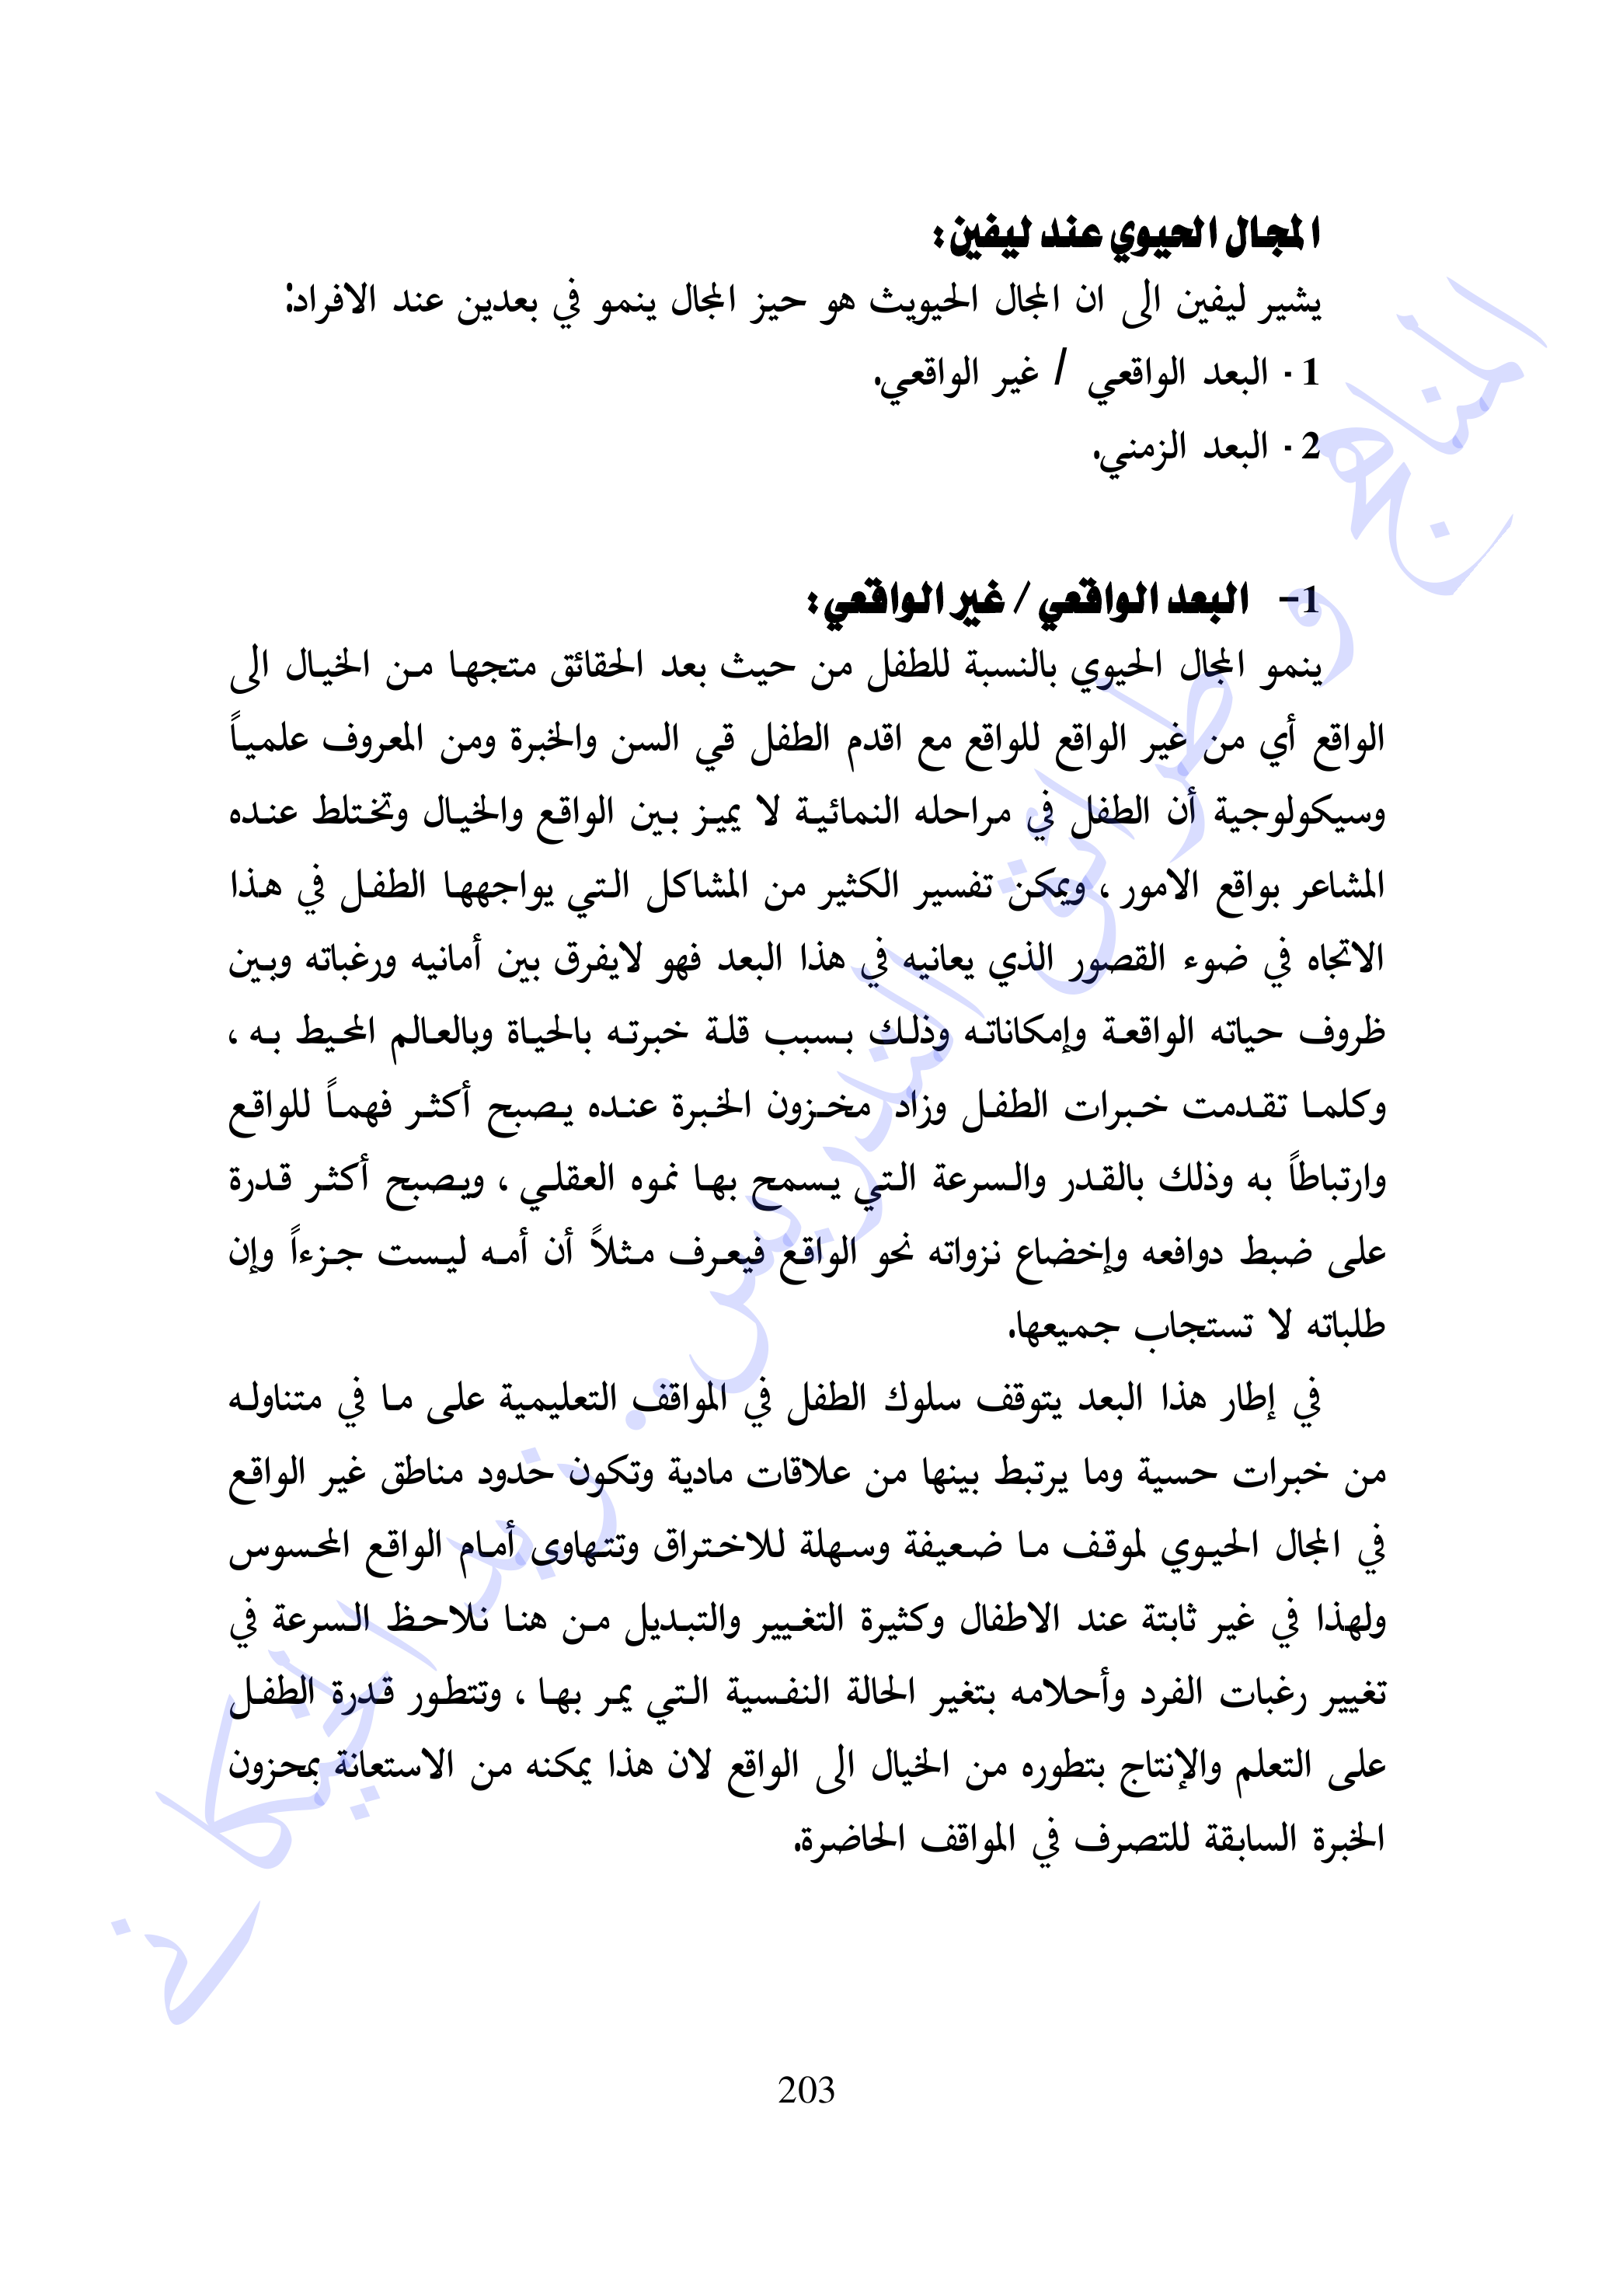 المجال الحيوي عند ليفين:
يشير ليفين الى ان المجال الحيويث هو حيز المجال ينمو في بعدين عند الافراد:
1- البعد الواقعي / غير الواقعي.
2- البعد الزمني.
1- البعد الواقعي / غير الواقعي:
ينمو المجال الحيوي بالنسبة للطفل من حيث بعد الحقائق متجها من الخيال الى
الواقع أي من غير الواقع للواقع مع اقدم الطفل قي السن والخبرة ومن المعروف علمياً
وسيكولوجية أن الطفل في مراحله النمائية لا يميز بين الواقع والخيال وتختلط عنده
المشاعر بواقع الامور ، ويمكن تفسير الكثير من المشاكل التي يواجهها الطفل في هذا
الاتجاه في ضوء القصور الذي يعانيه في هذا البعد فهو لايفرق بين أمانيه ورغباته وبين
ظروف حياته الواقعة وإمكاناته وذلك بسبب قلة خبرته بالحياة وبالعالم المحيط به ،
وكلما تقدمت خبرات الطفل وزاد مخزون الخبرة عنده يصبح أكثر فهماً للواقع
وارتباطاً به وذلك بالقدر والسرعة التي يسمح بها نموه العقلي ، ويصبح أكثر قدرة
على ضبط دوافعه وإخضاع نزواته نحو الواقع فيعرف مثلاً أن أمه ليست جزءاً وإن
طلباته لا تستجاب جميعها.
في إطار هذا البعد يتوقف سلوك الطفل في المواقف التعليمية على ما في متناوله
من خبرات حسية وما يرتبط بينها من علاقات مادية وتكون حدود مناطق غير الواقع
في المجال الحيوي لموقف ما ضعيفة وسهلة للاختراق وتتهاوى أمام الواقع المحسوس
ولهذا في غير ثابتة عند الاطفال وكثيرة التغيير والتبديل من هنا نلاحظ السرعة في
تغيير رغبات الفرد وأحلامه بتغير الحالة النفسية التي يمر بها ، وتتطور قدرة الطفل
على التعلم والإنتاج بتطوره من الخيال الى الواقع لان هذا يمكنه من الاستعانة بمحزون
الخبرة السابقة للتصرف في المواقف الحاضرة.
المناهج وطرائق التدريس . زيد الخيكاني
203